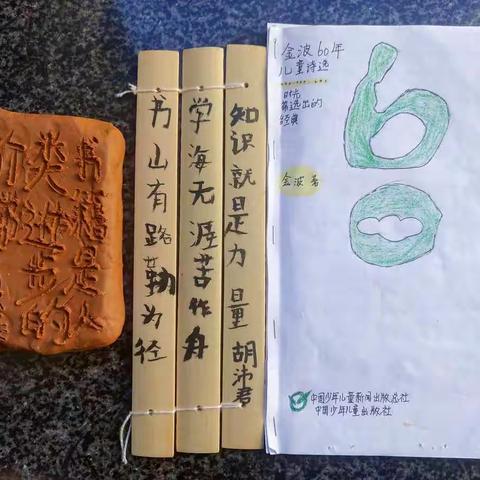 书籍是人
类进步的
书山有路勤为径
学海无涯苦作舟
知识就是力量 胡沛君
金波60年
儿童诗选
时光
筛选出的
经典
金波 著
60
中国少年儿童新闻出版总社
中国少年儿童出版社